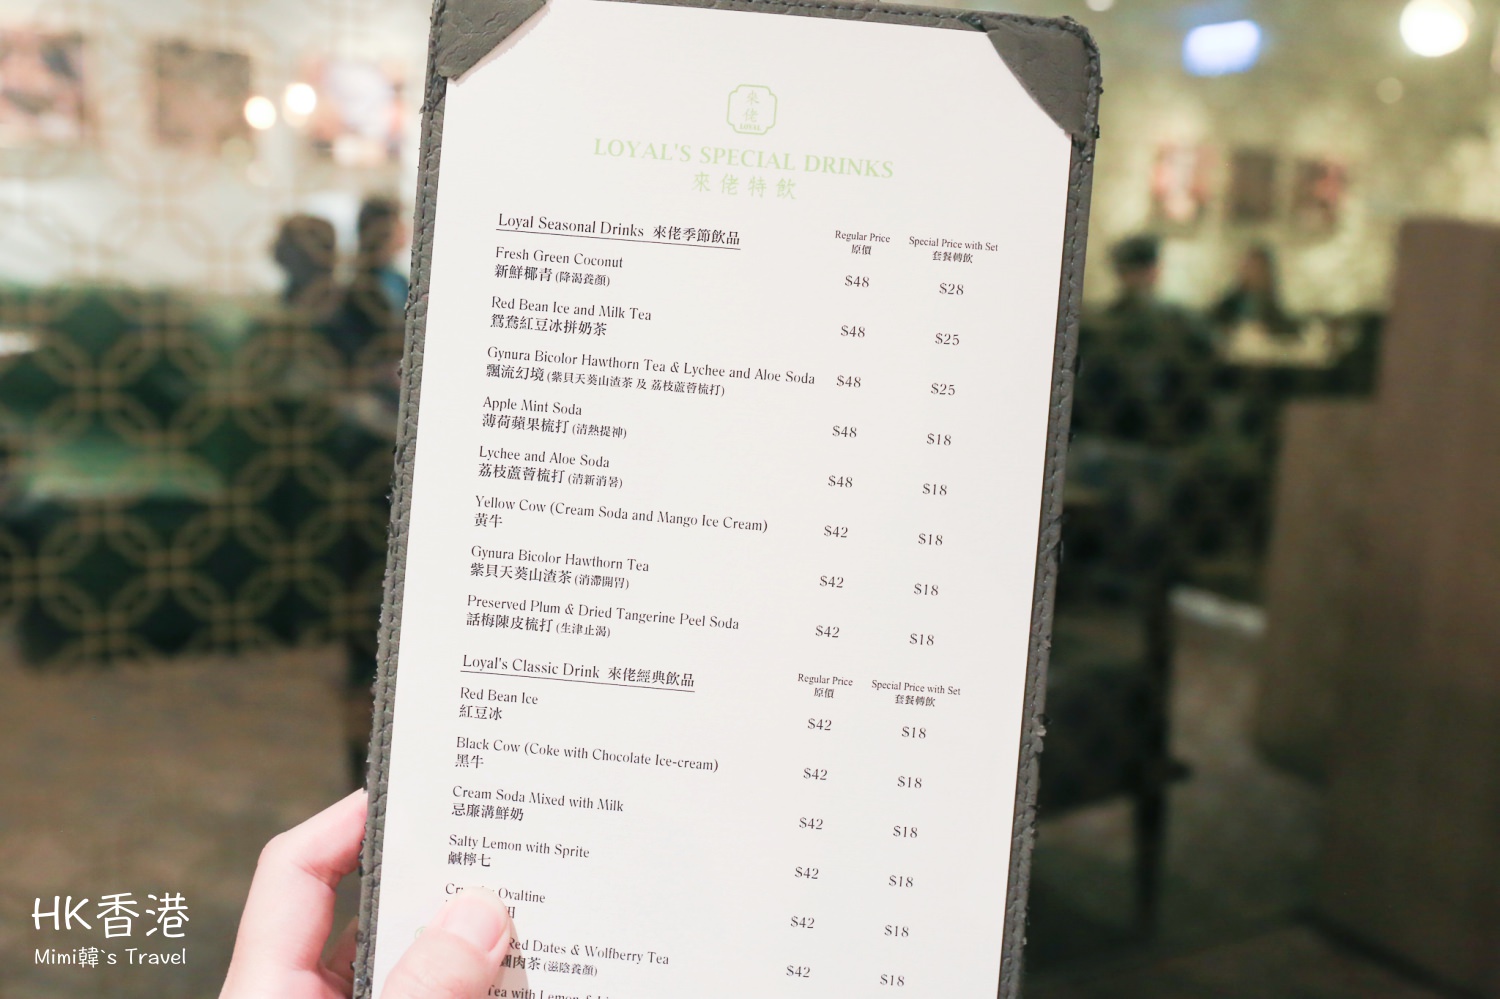 來佬
LOYAL
LOYAL'S SPECIAL DRINKS
來佬特飲
Loyal Seasonal Drinks 來佬季節飲品
Regular Price Special Price with Set
原價 套餐轉飲
Fresh Green Coconut
新鮮椰青 (降渴養顏) $48 $28
Red Bean Ice and Milk Tea
鴛鴦紅豆冰拼奶茶 $48 $25
Gynura Bicolor Hawthorn Tea & Lychee and Aloe Soda
飄流幻境 (紫貝天葵山渣茶 及 荔枝蘆薈梳打) $48 $25
Apple Mint Soda
薄荷蘋果梳打 (清熱提神) $48 $18
Lychee and Aloe Soda
荔枝蘆薈梳打 (清新消暑) $48 $18
Yellow Cow (Cream Soda and Mango Ice Cream)
黃牛 $42 $18
Gynura Bicolor Hawthorn Tea
紫貝天葵山渣茶 (消滯開胃) $42 $18
Preserved Plum & Dried Tangerine Peel Soda
話梅陳皮梳打 (生津止渴) $42 $18
Loyal's Classic Drink 來佬經典飲品
Regular Price Special Price with Set
原價 套餐轉飲
Red Bean Ice
紅豆冰 $42 $18
Black Cow (Coke with Chocolate Ice-cream)
黑牛 $42 $18
Cream Soda Mixed with Milk
忌廉溝鮮奶 $42 $18
Salty Lemon with Sprite
鹹檸七 $42 $18
Ovaltine
田 $42 $18
Red Dates & Wolfberry Tea
肉茶 (滋陰養顏) $42 $18
Tea with Lemon &
HK香港
Mimi韓`s Travel